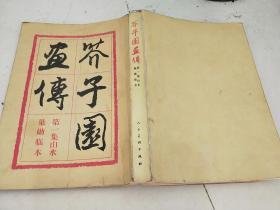 芥子園
畫傳
第一集山水
巢勛臨本
芥子園畫傳
人民美術出版社